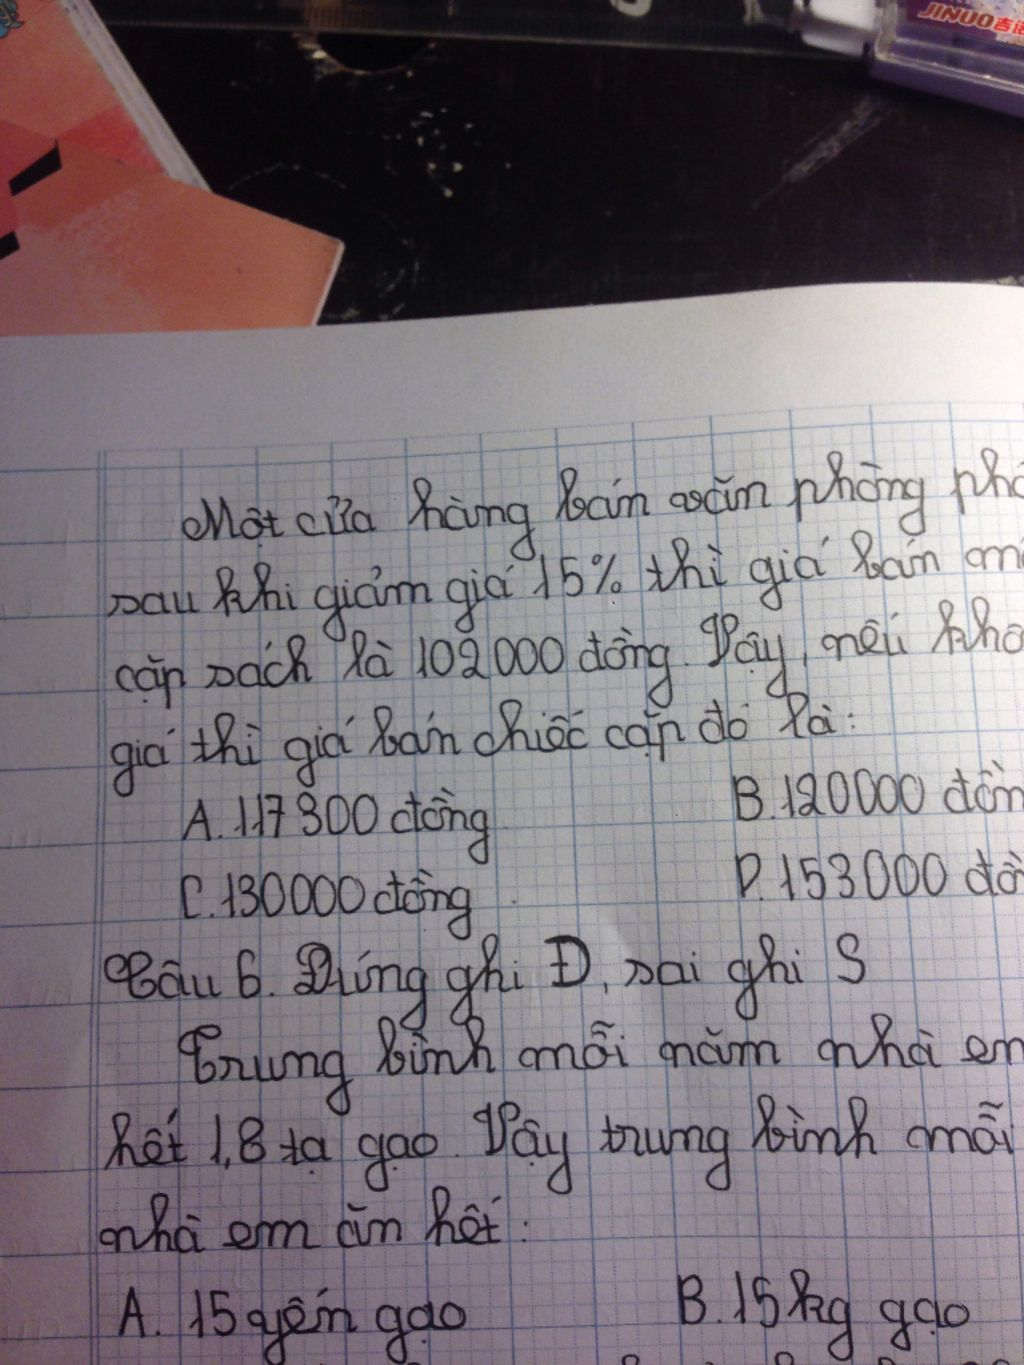 JINUO吉诺
Một cửa hàng bán văn phòng
sau khi giảm giá 15% thì giá bán
cặp sách là 102000 đồng. Vậy, nếu
giá thì giá bán chiếc cặp đó là:
A. 117300 đồng B. 120000 đồn
C. 130000 đồng D. 153000 đồ
Câu 6. Đúng ghi Đ, sai ghi S
Trung bình mỗi năm nhà em
hết 1,8 tạ gạo. Vậy trung bình mỗi
nhà em ăn hết:
A. 15 yến gạo B. 15 kg gạo